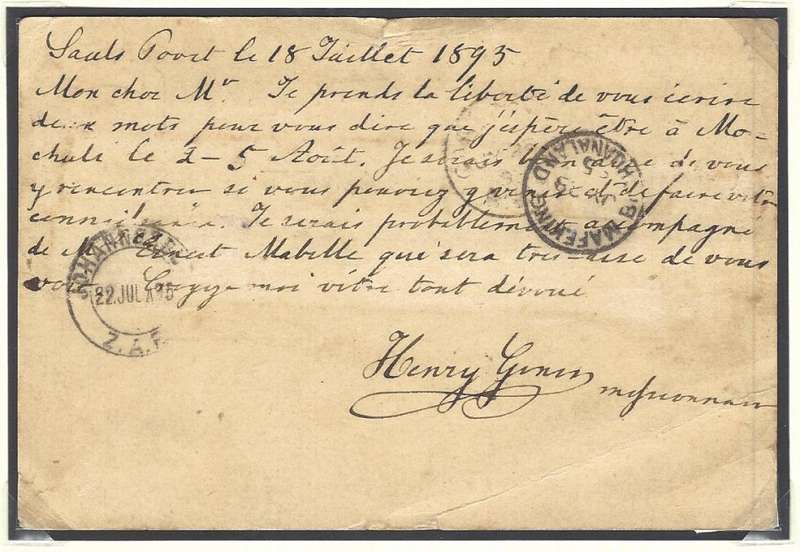 Sauls Poort le 18 Juillet 1895
Mon cher Mr. Je prends la liberté de vous écrire
deux mots pour vous dire que j'espère être à Mo-
chuli le 2-5 Août. Je serais bien aise de vous
y rencontrer si vous pouvez y venir et de faire votre
connaissance. Je serais probablement accompagné
de M. Ernest Mabille qui sera très-aise de vous
voir. Croyez moi vôtre tout dévoué
Henry Gonin missionnaire
JOHANNESBURG
22 JUL X 95
Z.A.R.
MAFEKING
B. BECHUANALAND
JY 25
95